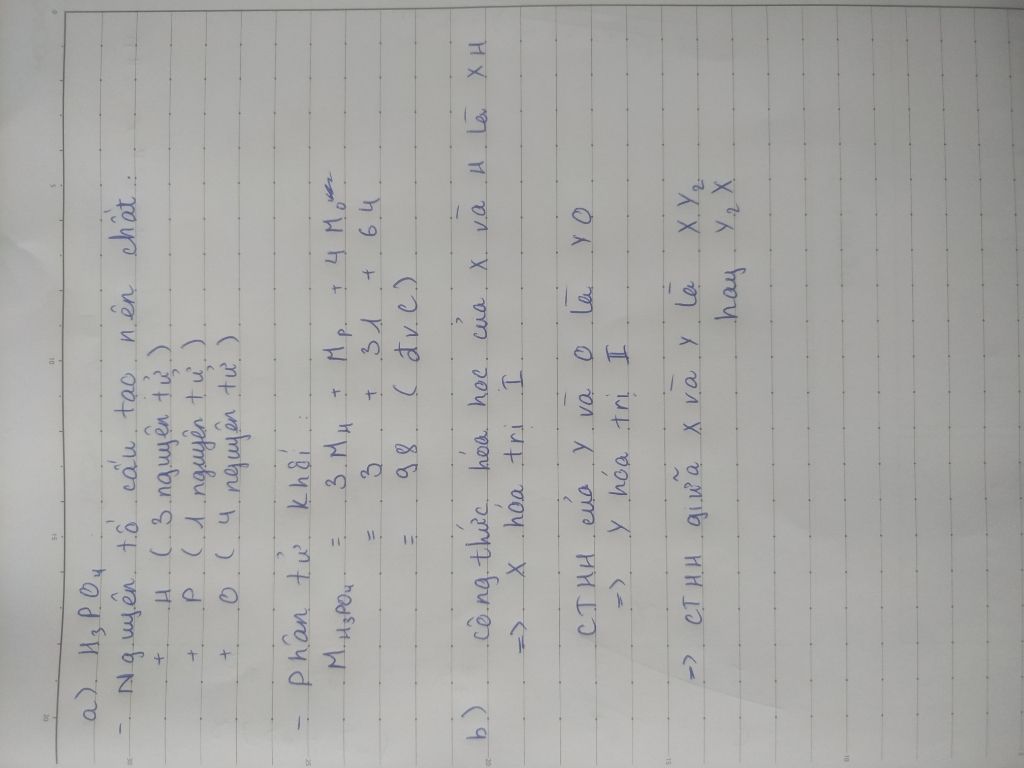 a) H₃PO₄
- Nguyên tố cấu tạo nên chất:
+ H ( 3 nguyên tử )
+ P ( 1 nguyên tử )
+ O ( 4 nguyên tử )
- Phân tử khối :
M H₃PO₄ = 3 M H + M P + 4 M O
= 3 + 31 + 64
= 98 ( đvC )
b) công thức hóa học của X và H là XH
=> X hóa trị I
CTHH của Y và O là YO
=> Y hóa trị II
=> CTHH giữa X và Y là XY₂
hay Y₂X